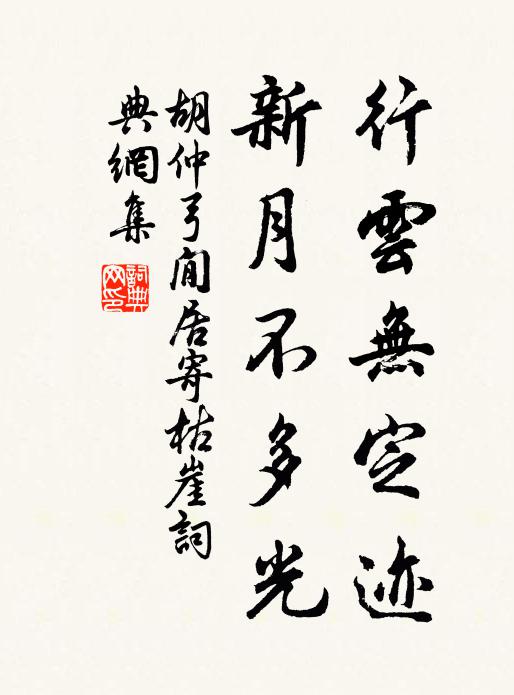 行雲無定迹
新月不多光
胡仲弓閒居寄枯崖詞
典網集
詞典
网印